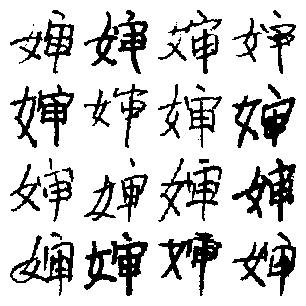 婶婶婶婶
婶婶婶婶
婶婶婶婶
婶婶婶婶